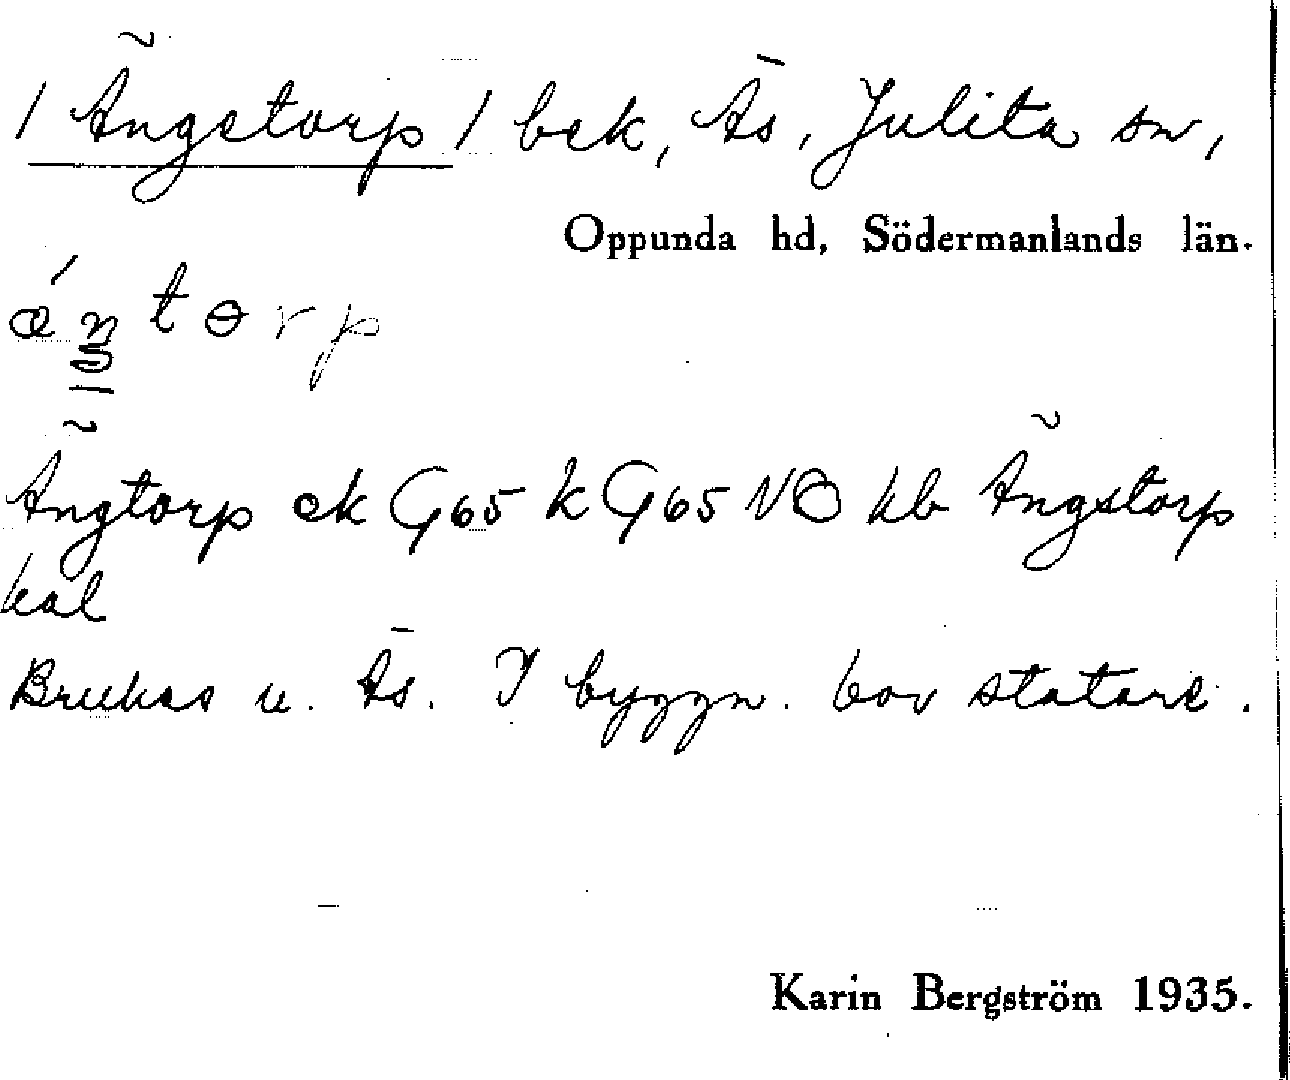 / Ängstorp / bek, Äs, Julita sn,
Oppunda hd, Södermanlands län.
Ängtorp ek G65 k G65 NO hb Ängstorp
kal
Brukas u. Äs. I byggn. bor statare.
Karin Bergström 1935.